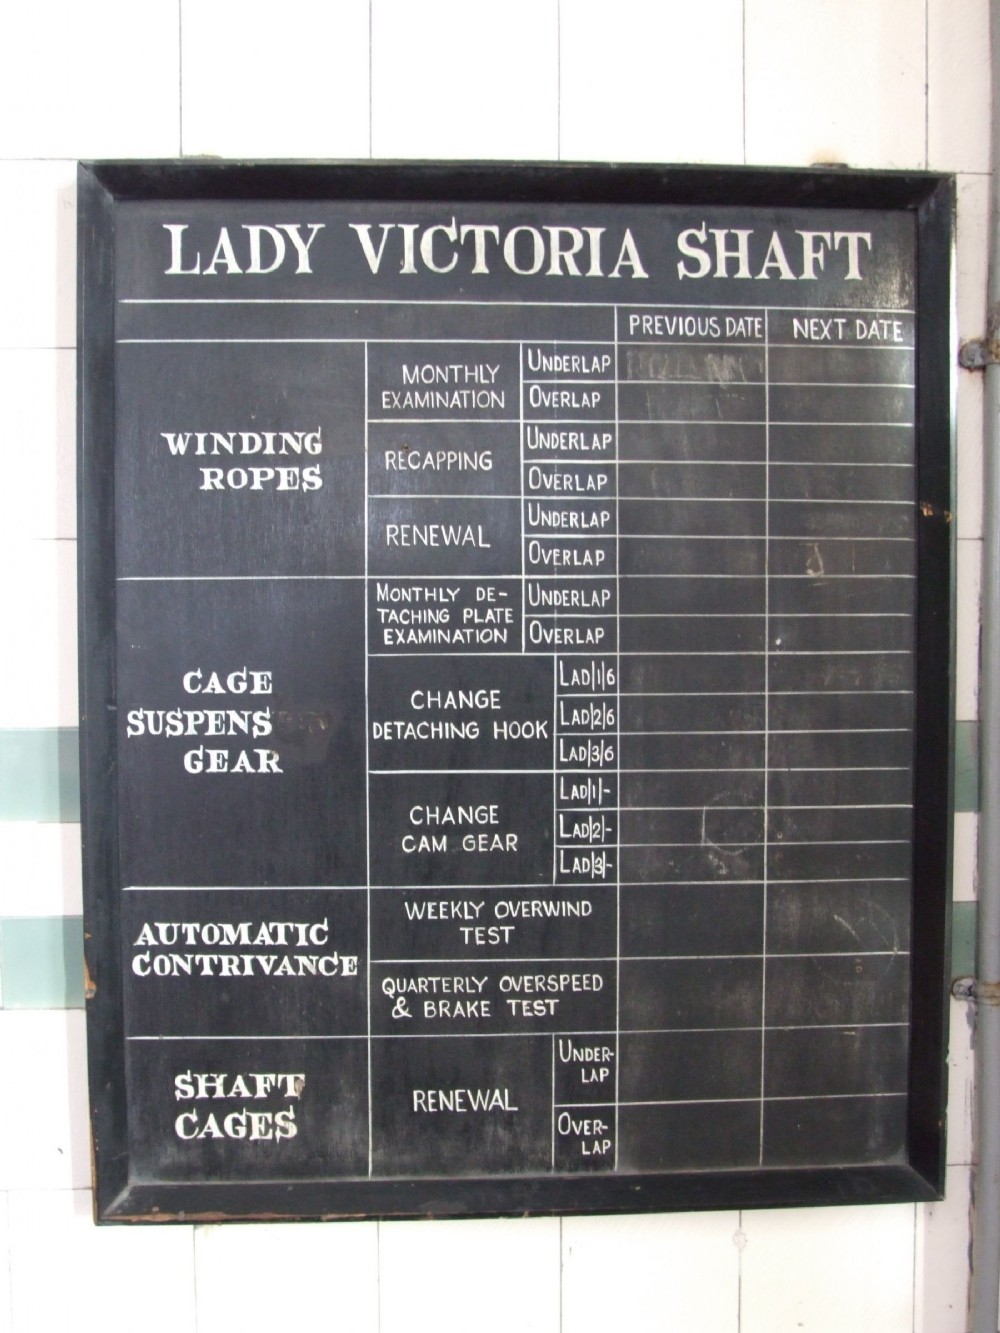 LADY VICTORIA SHAFT
PREVIOUS DATE NEXT DATE
WINDING
ROPES
MONTHLY
EXAMINATION
UNDERLAP
OVERLAP
RECAPPING
UNDERLAP
OVERLAP
RENEWAL
UNDERLAP
OVERLAP
CAGE
SUSPENS
GEAR
MONTHLY DE-
TACHING PLATE
EXAMINATION
UNDERLAP
OVERLAP
CHANGE
DETACHING HOOK
LAD|1|6
LAD|2|6
LAD|3|6
CHANGE
CAM GEAR
LAD|1|-
LAD|2|-
LAD|3|-
AUTOMATIC
CONTRIVANCE
WEEKLY OVERWIND
TEST
QUARTERLY OVERSPEED
& BRAKE TEST
SHAFT
CAGES
RENEWAL
UNDER-
LAP
OVER-
LAP